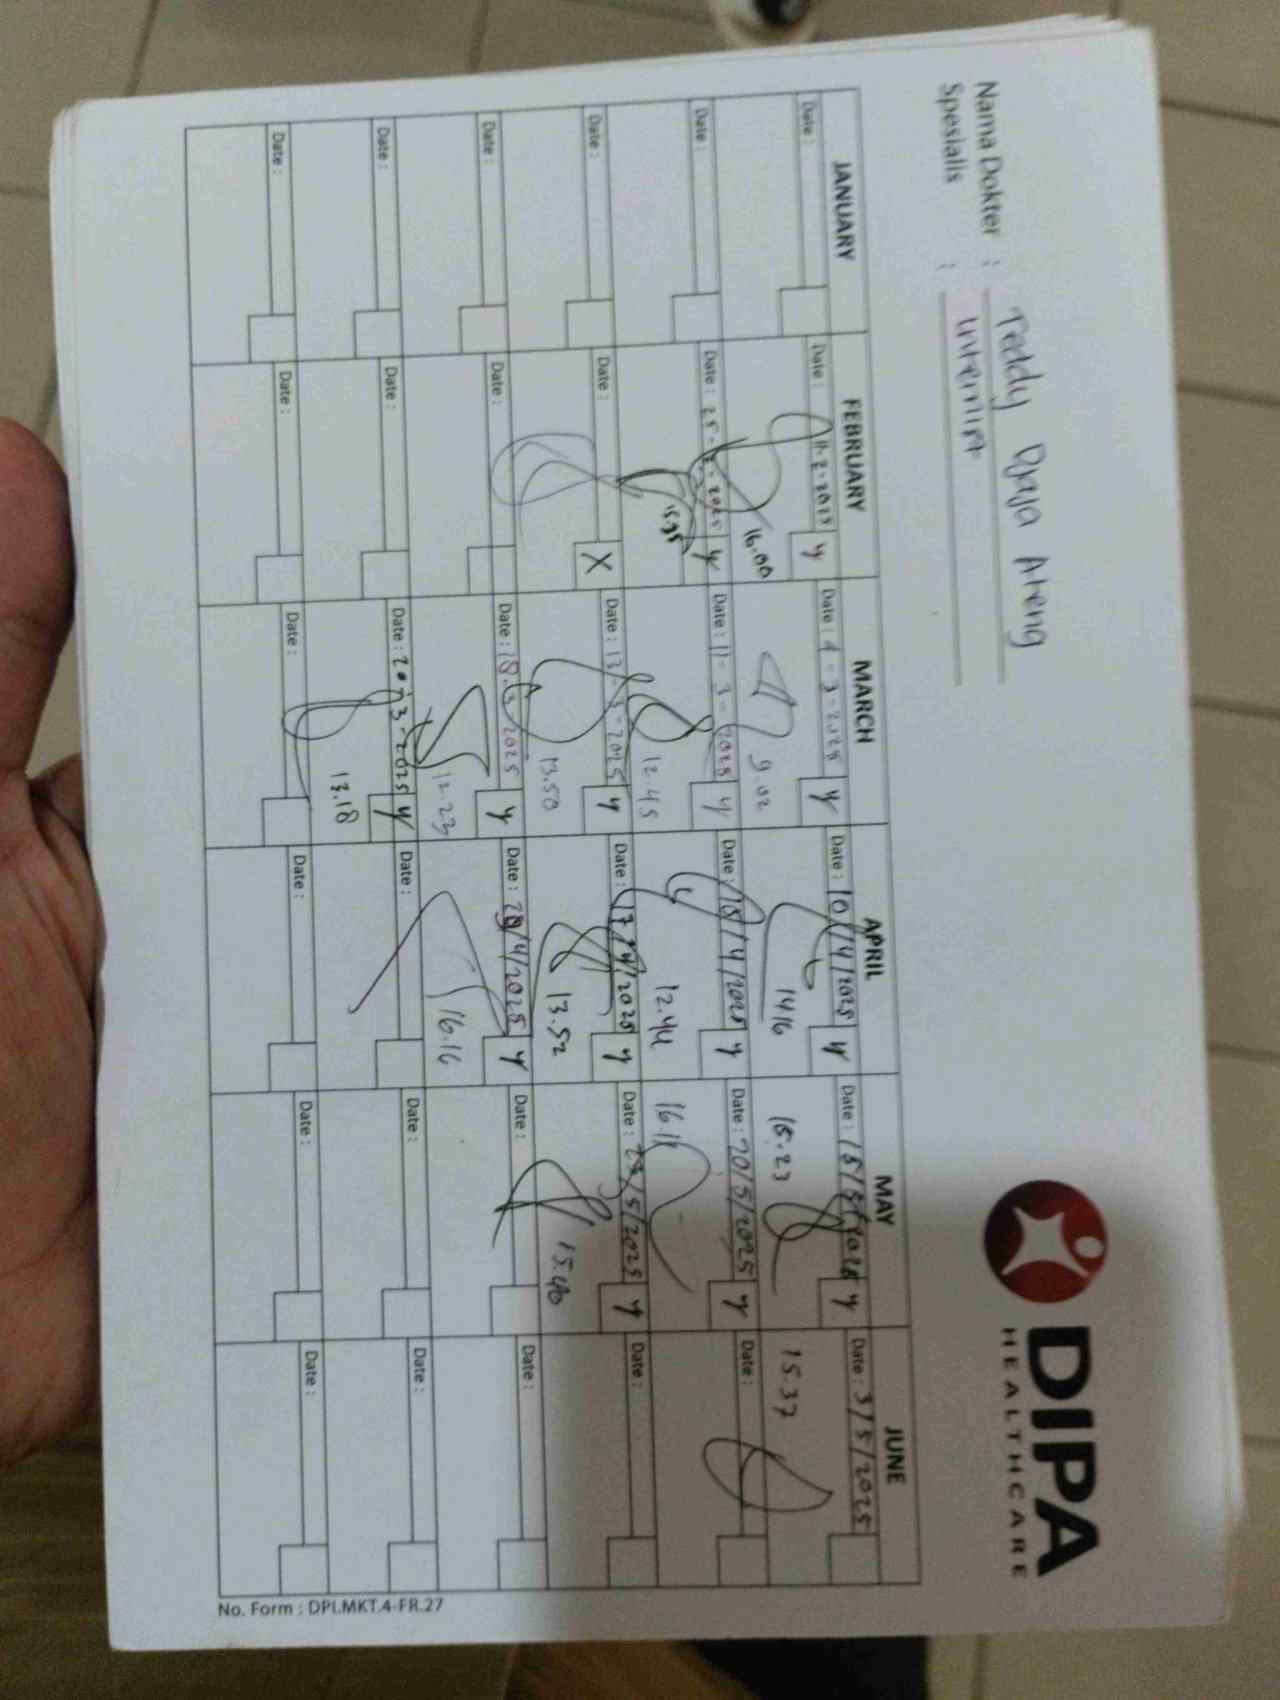 Nama Dokter : Teddy Djaja Ateng
Spesialis : Internist
DIPA
HEALTHCARE
JANUARY FEBRUARY MARCH APRIL MAY JUNE
Date : Date : 11-2-2025 y Date : 4-3-2025 y Date : 10/4/2025 y Date : 15/5/2025 y Date : 3/5/2025
16.00 9.02 1416 15.23 15.37
Date : Date : 25-2-2025 y Date : 11-3-2025 y Date : 15/4/2025 y Date : 20/5/2025 y Date :
15.35 12.45 12.44
Date : Date : X Date : 13-3-2025 y Date : 17/4/2025 y Date : /5/2025 y Date :
13.50 13.52 15.40
Date : Date : Date : 18-3-2025 y Date : /4/2025 y Date : Date :
12.23 16.16
Date : Date : Date : 20-3-2025 y Date : Date : Date :
13.18
Date : Date : Date : Date : Date : Date :
No. Form : DPI.MKT.4-FR.27